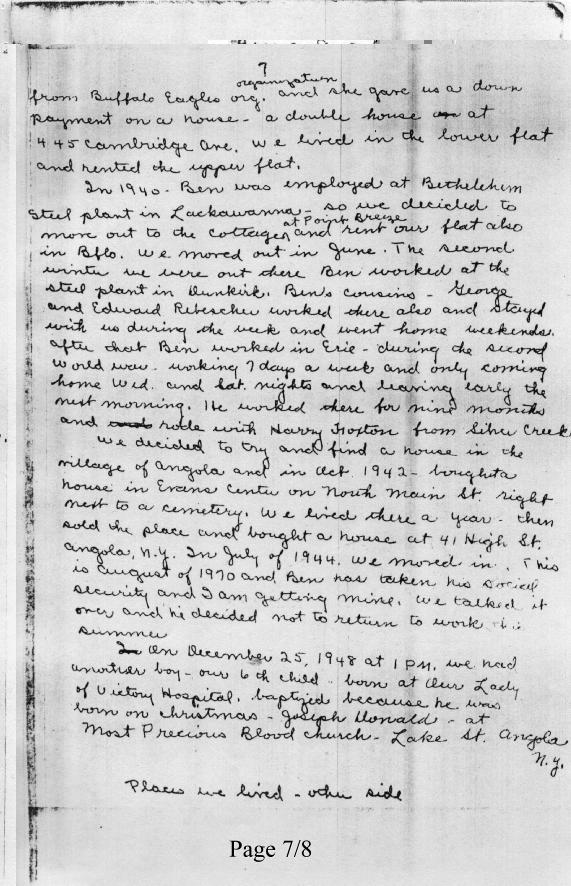 7
organization
from Buffalo Eagles org. and she gave us a down
payment on a house - a double house at
445 Cambridge Ave. We lived in the lower flat
and rented the upper flat.
In 1940 - Ben was employed at Bethelehim
Steel plant in Lackawanna - so we decided to
at Point Breeze
move out to the cottage and rent our flat also
in Bflo. We moved out in June. The second
winter we were out there Ben worked at the
steel plant in Dunkirk. Ben's cousins - George
and Edward Reberscher worked there also and stayed
with us during the week and went home weekends.
After that Ben worked in Erie - during the second
World war - working 7 days a week and only coming
home Wed. and Sat. nights and leaving early the
next morning. He worked there for nine months
and rode with Harry Hoxton from Silver Creek
We decided to try and find a house in the
village of Angola and in Oct. 1942 - bought a
house in Evans Center on North Main St. right
next to a cemetery. We lived there a year - then
sold the place and bought a house at 41 High St.
Angola, N.Y. In July of 1944. We moved in. This
is August of 1970 and Ben has taken his social
security and I am getting mine. We talked it
over and he decided not to return to work this
summer
On December 25, 1948 at 1 PM. we had
another boy - our 6th child - born at Our Lady
of Victory Hospital. baptized because he was
born on Christmas - Joseph Donald - at
Most Precious Blood church - Lake St. Angola
N.Y.
Places we lived - other side
Page 7/8